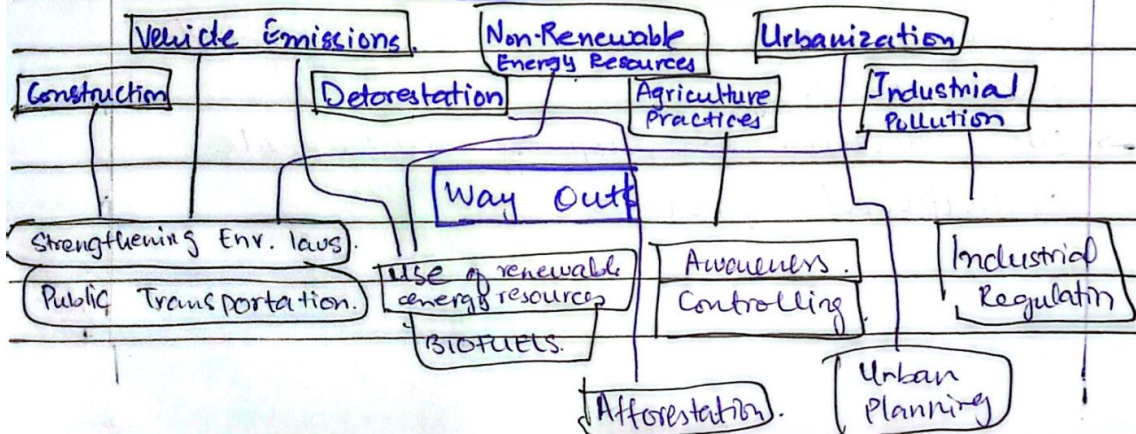 Vehicle Emissions.
Non-Renewable
Energy Resources
Urbanization
Construction
Deforestation
Agriculture
Practices
Industrial
Pollution
Way Out
Strengthening Env. laws.
Public Transportation.
Use of renewable
energy resources
BIOFUELS.
Awareness.
Controlling
Industrial
Regulatin
Afforestation.
Urban
Planning